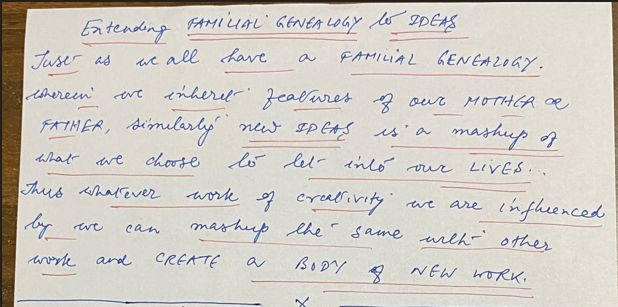 Extending FAMILIAL GENEALOGY to IDEAS
Just as we all have a FAMILIAL GENEALOGY.
wherein we inherit features of our MOTHER &
FATHER, similarly new IDEAS is a mashup of
what we choose to let into our LIVES...
Thus whatever work of creativity we are influenced
by we can mashup the same with other
work and CREATE a BODY of NEW WORK.
X